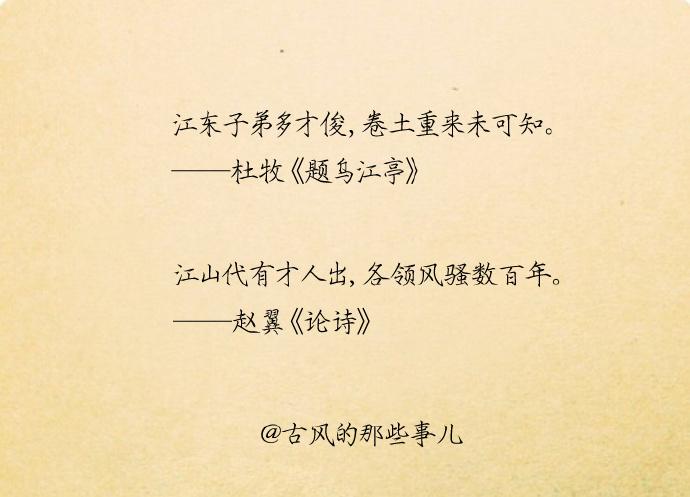 江东子弟多才俊,卷土重来未可知。
——杜牧《题乌江亭》
江山代有才人出,各领风骚数百年。
——赵翼《论诗》
@古风的那些事儿